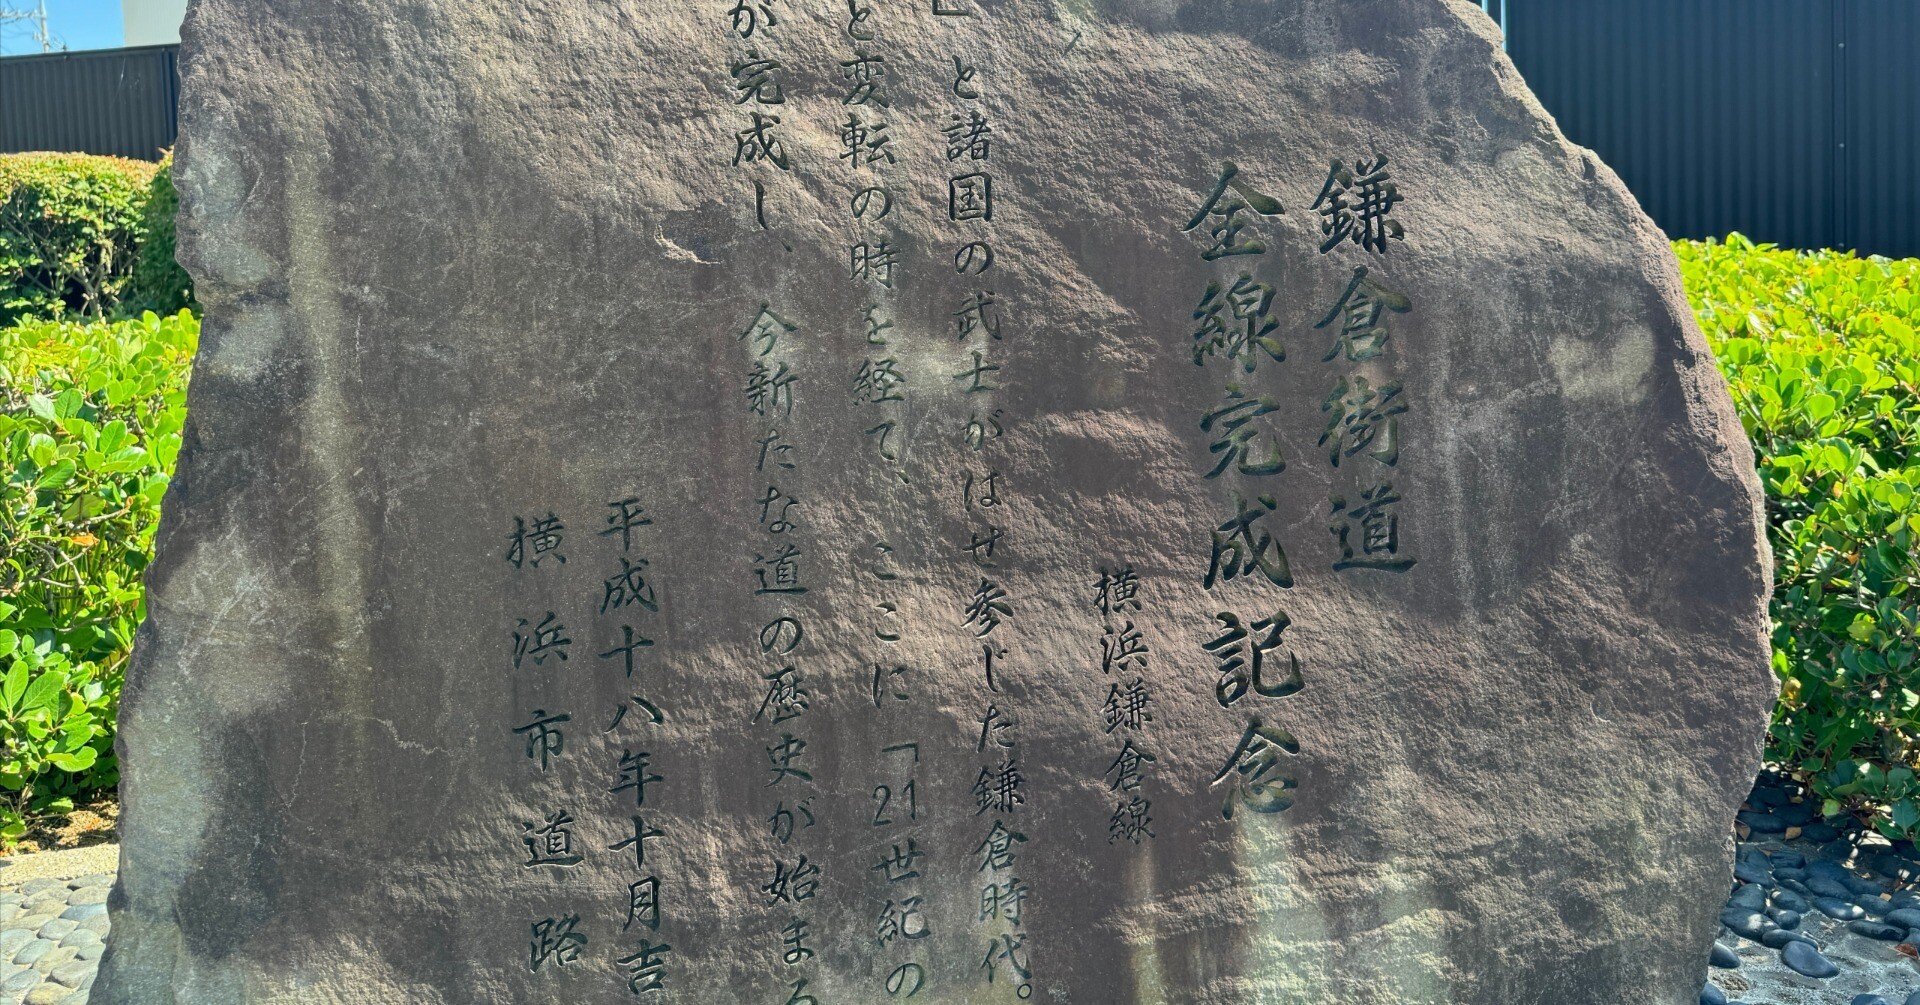 鎌倉街道
全線完成記念
横浜鎌倉線
」と諸国の武士がはせ参じた鎌倉時代。
と変転の時を経て、ここに「21世紀の
が完成し、今新たな道の歴史が始まる
平成十八年十月吉
横浜市道路